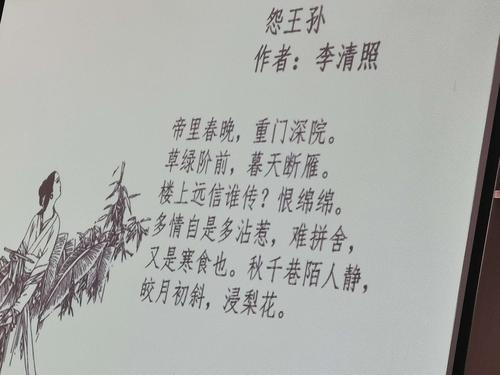 怨王孙
作者：李清照
帝里春晚，重门深院。
草绿阶前，暮天断雁。
楼上远信谁传？恨绵绵。
多情自是多沾惹，难拼舍，
又是寒食也。秋千巷陌人静，
皎月初斜，浸梨花。